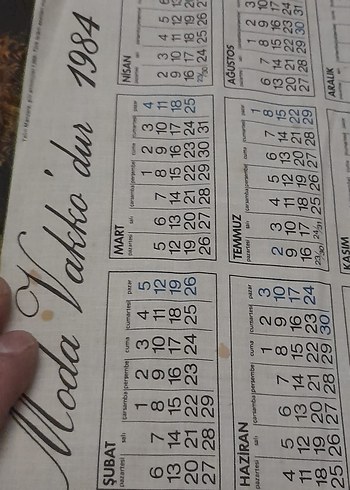 Moda Vakko'dur 1984
ŞUBAT
pazartesi salı çarşamba perşembe cuma cumartesi pazar
1 2 3 4 5
6 7 8 9 10 11 12
13 14 15 16 17 18 19
20 21 22 23 24 25 26
27 28 29
MART
pazartesi salı çarşamba perşembe cuma cumartesi pazar
1 2 3 4
5 6 7 8 9 10 11
12 13 14 15 16 17 18
19 20 21 22 23 24 25
26 27 28 29 30 31
NİSAN
2 3 4 5 6
9 10 11 12 13
16 17 18 19 20
23/30 24 25 26 27
HAZİRAN
pazartesi salı çarşamba perşembe cuma cumartesi pazar
1 2 3
4 5 6 7 8 9 10
11 12 13 14 15 16 17
18 19 20 21 22 23 24
25 26 27 28 29 30
TEMMUZ
pazartesi salı çarşamba perşembe cuma cumartesi pazar
1
2 3 4 5 6 7 8
9 10 11 12 13 14 15
16 17 18 19 20 21 22
23/30 24/31 25 26 27 28 29
AĞUSTOS
1 2 3
6 7 8 9 10
13 14 15 16 17
20 21 22 23 24
27 28 29 30 31
KASIM
ARALIK